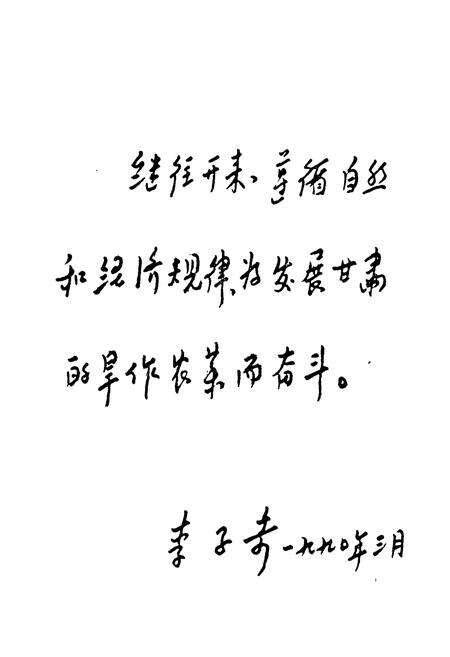 继往开来、遵循自然
和经济规律、为发展甘肃
的旱作农业而奋斗。
李子奇 一九九〇年三月